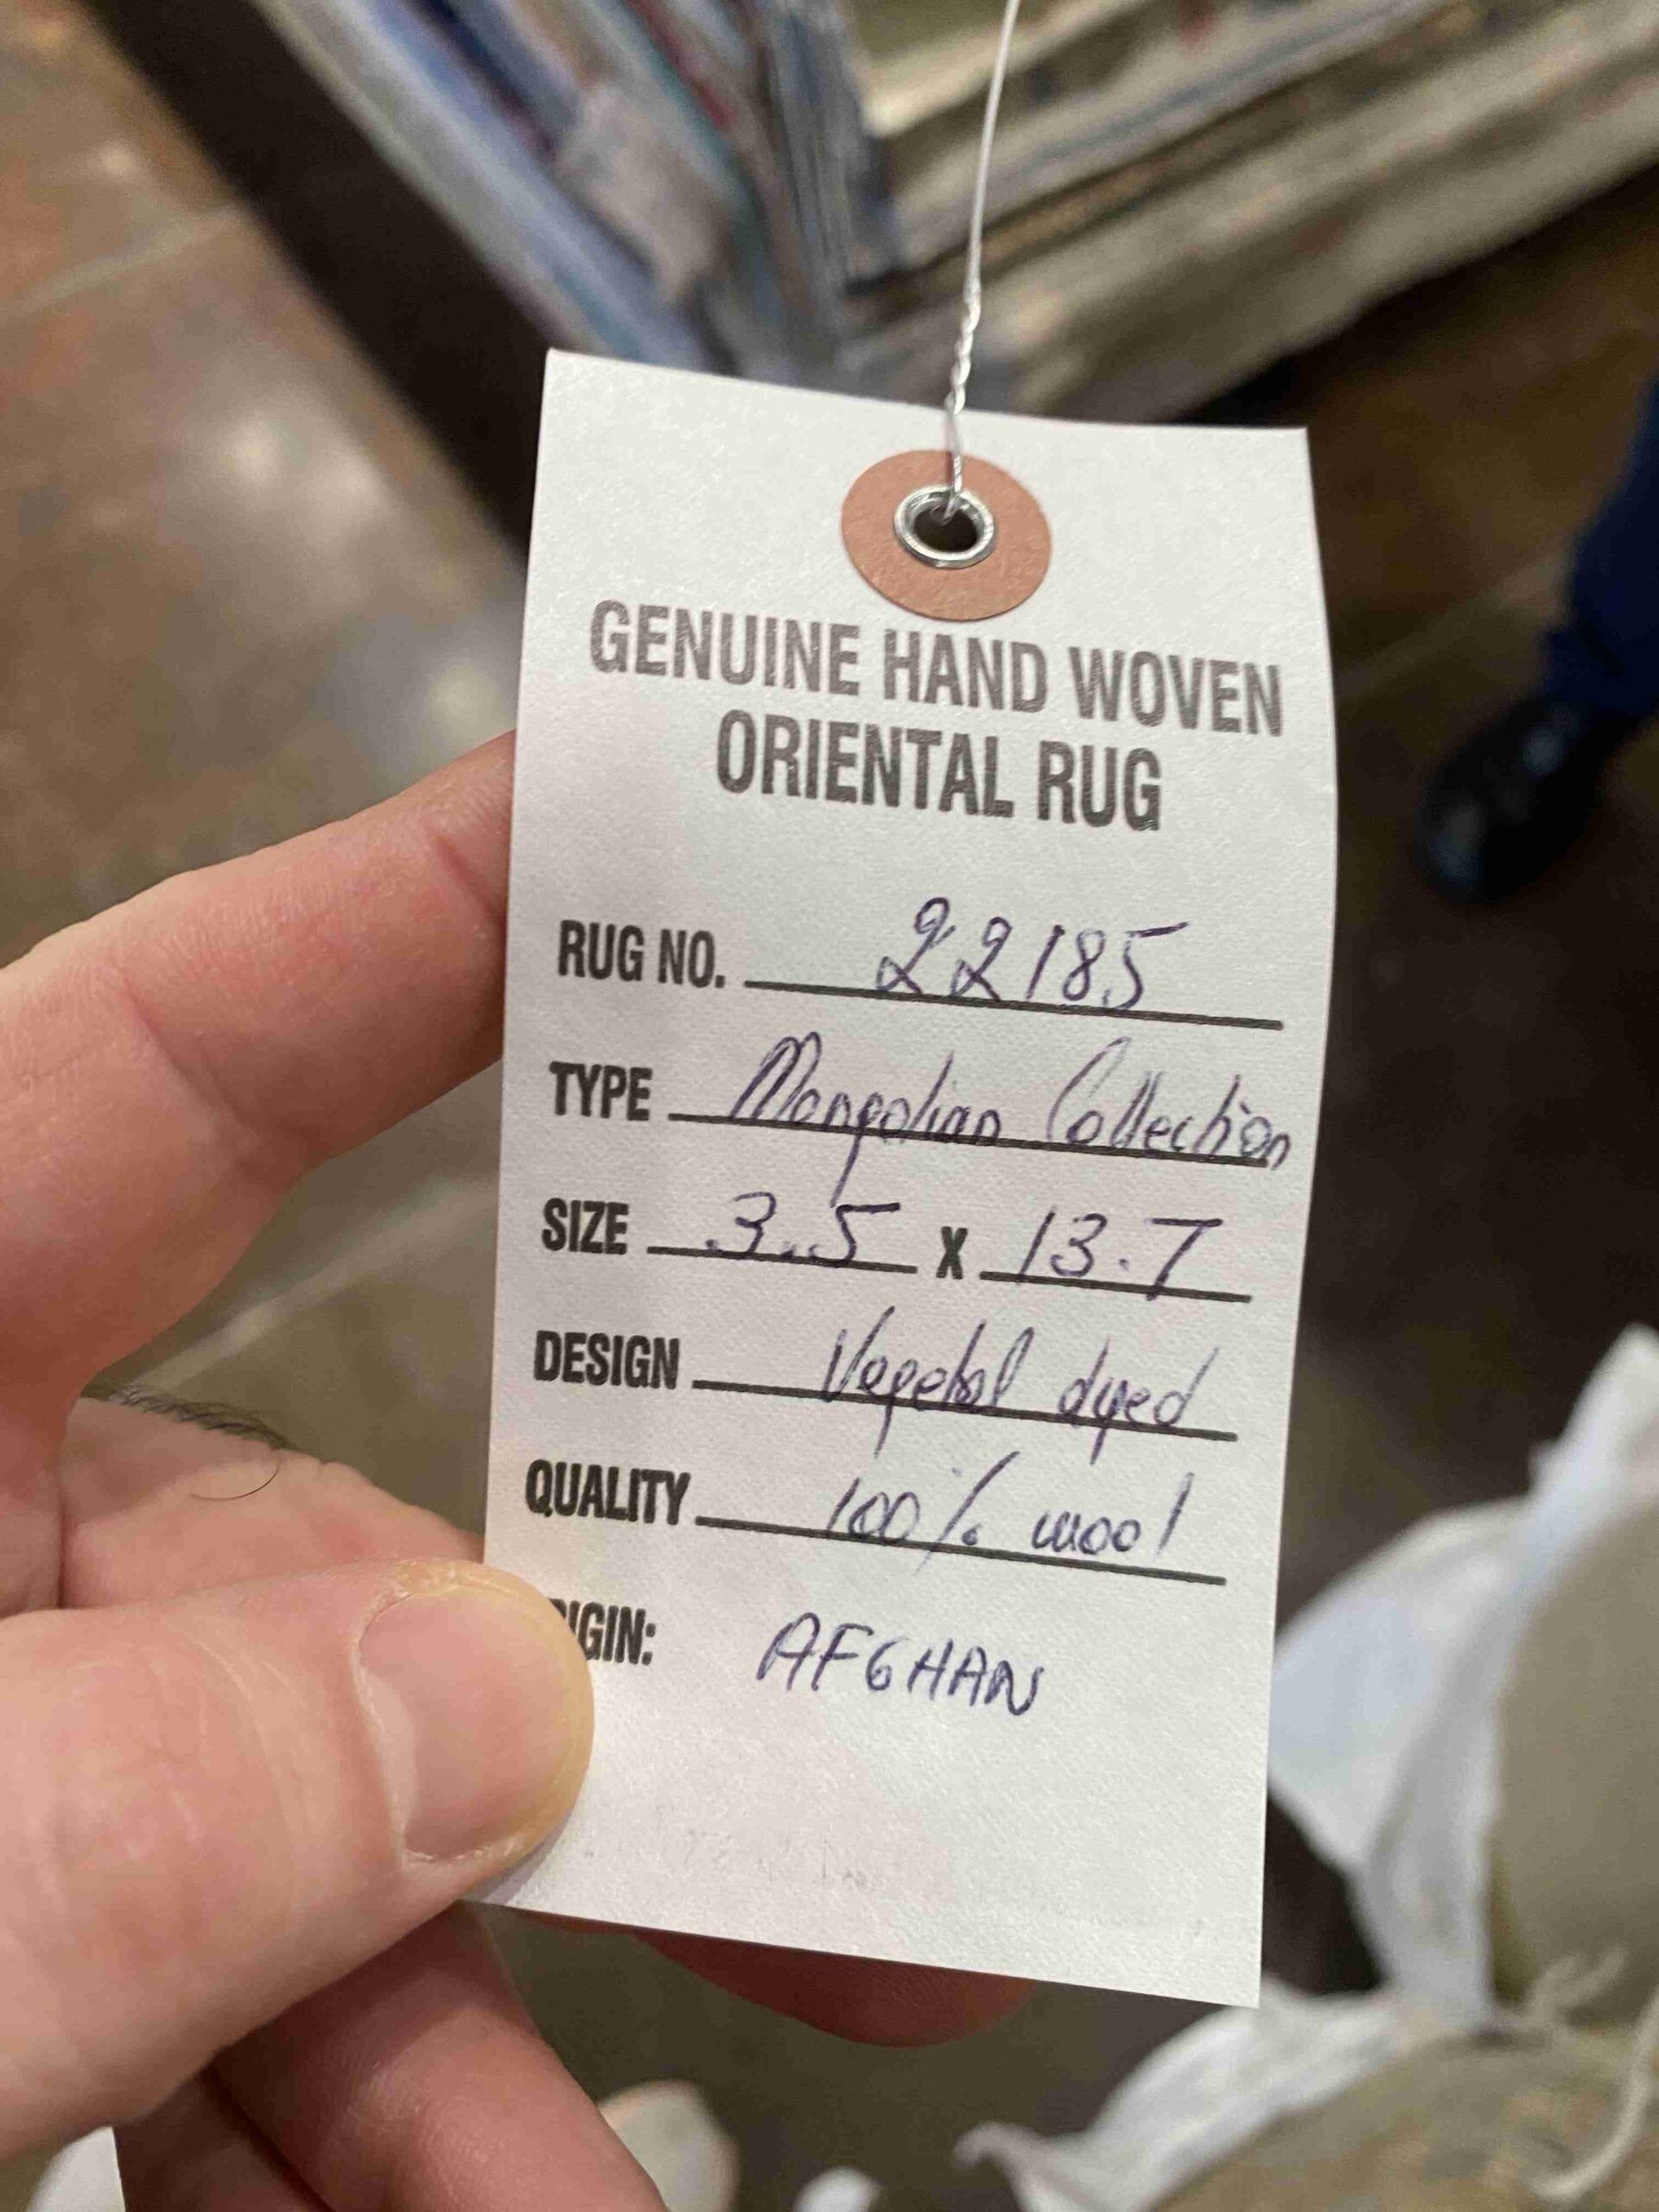 GENUINE HAND WOVEN
ORIENTAL RUG
RUG NO. 22185
TYPE Mongolian Collection
SIZE 3.5 X 13.7
DESIGN Vegetal dyed
QUALITY 100% wool
IGIN: AFGHAN